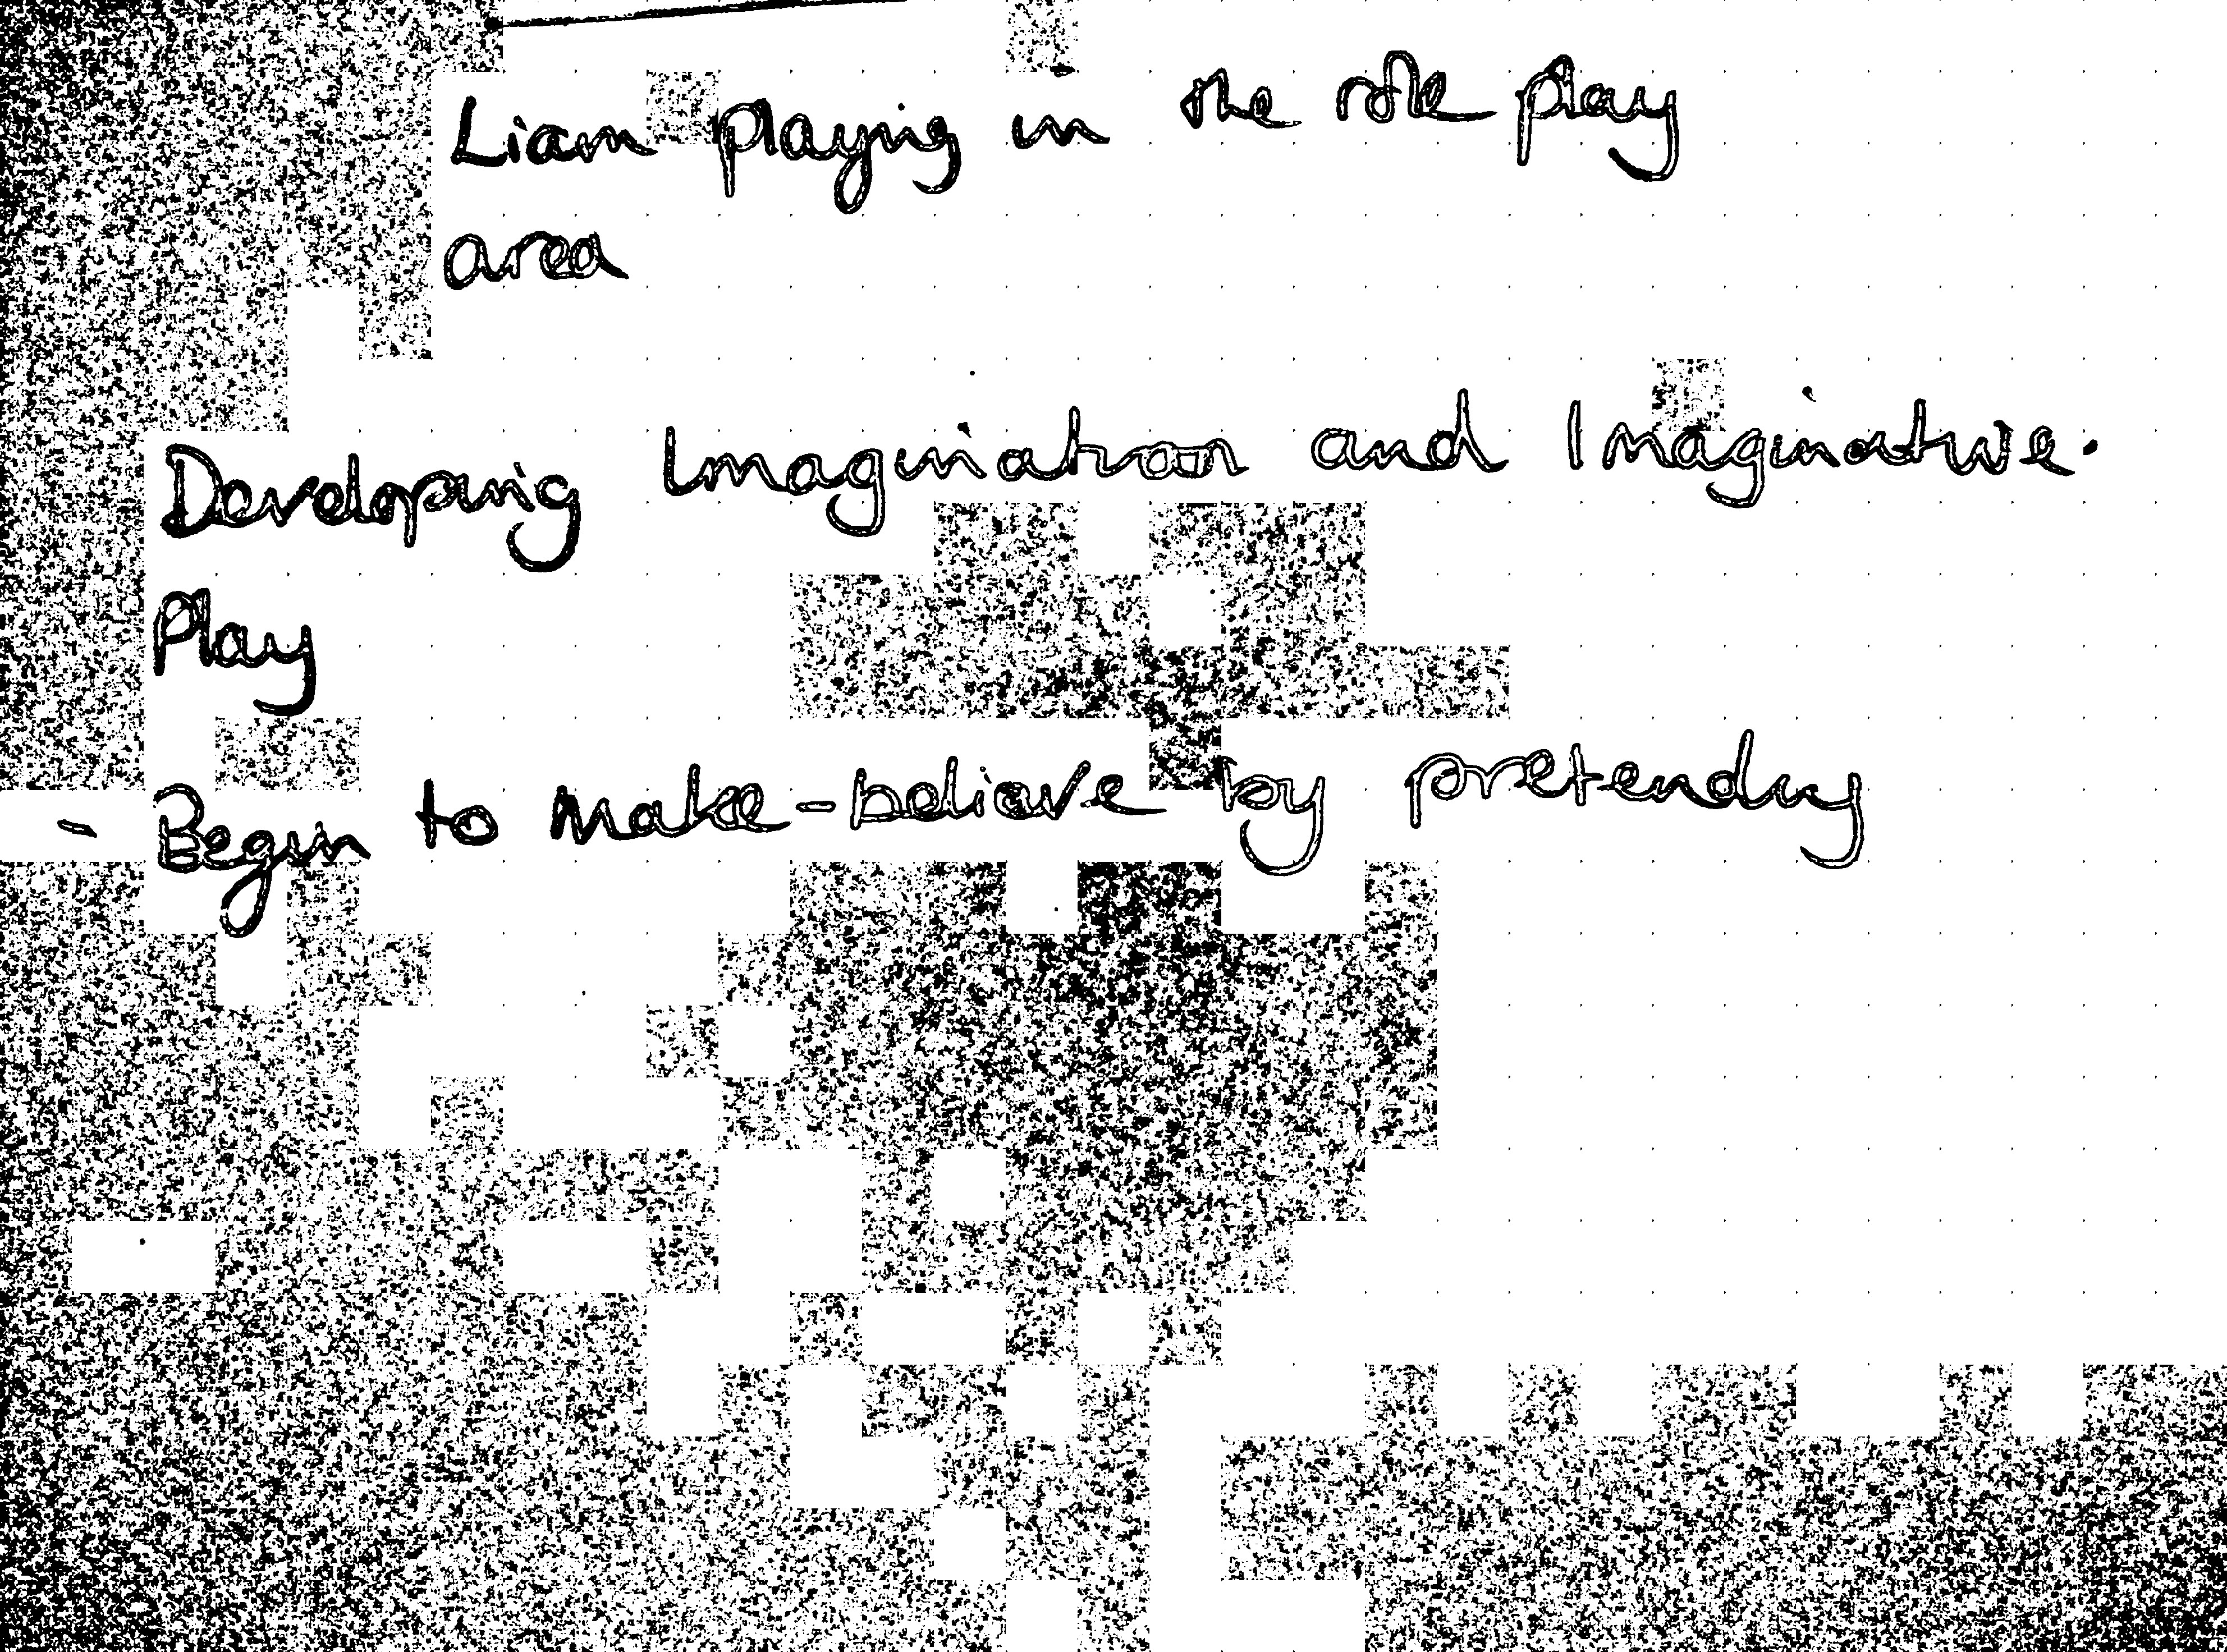 Liam playing in the role play
area
Developing Imagination and Imaginative.
Play
- Begin to make-believe by pretending